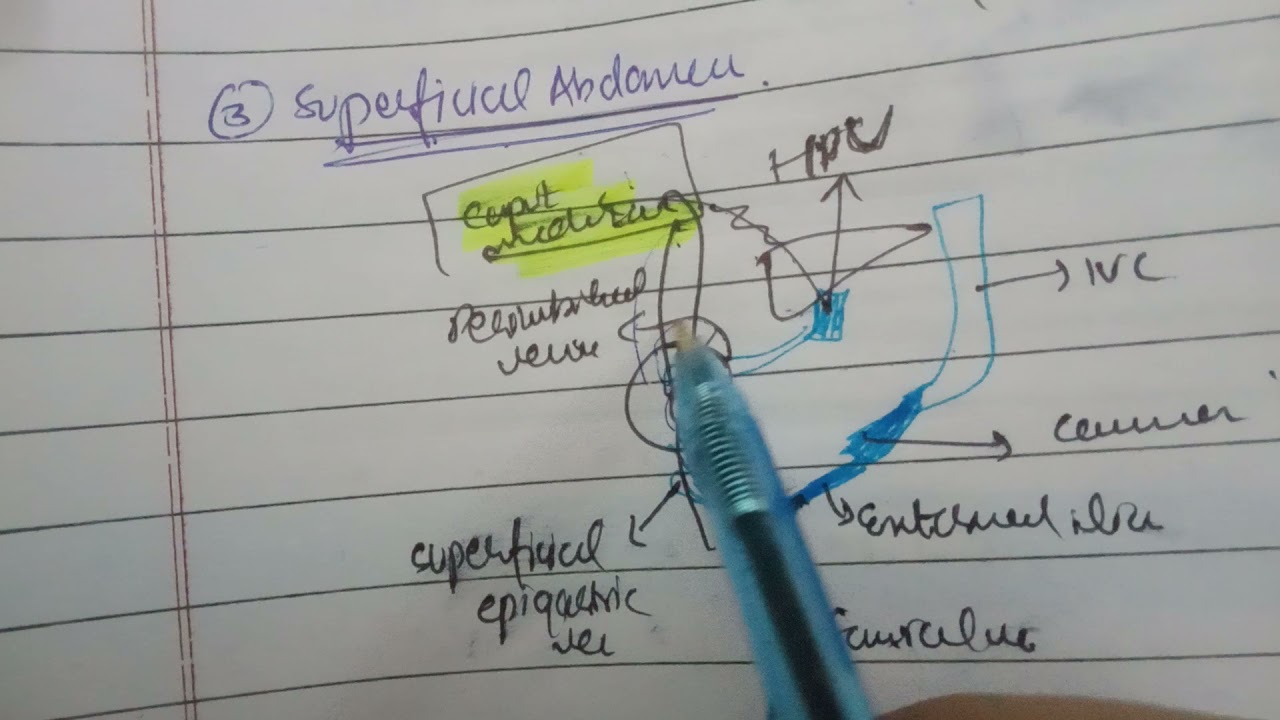 ③ Superficial Abdomen.
caput
HPV
IVC
vein
common
External iliac
superficial
epigastric
vei